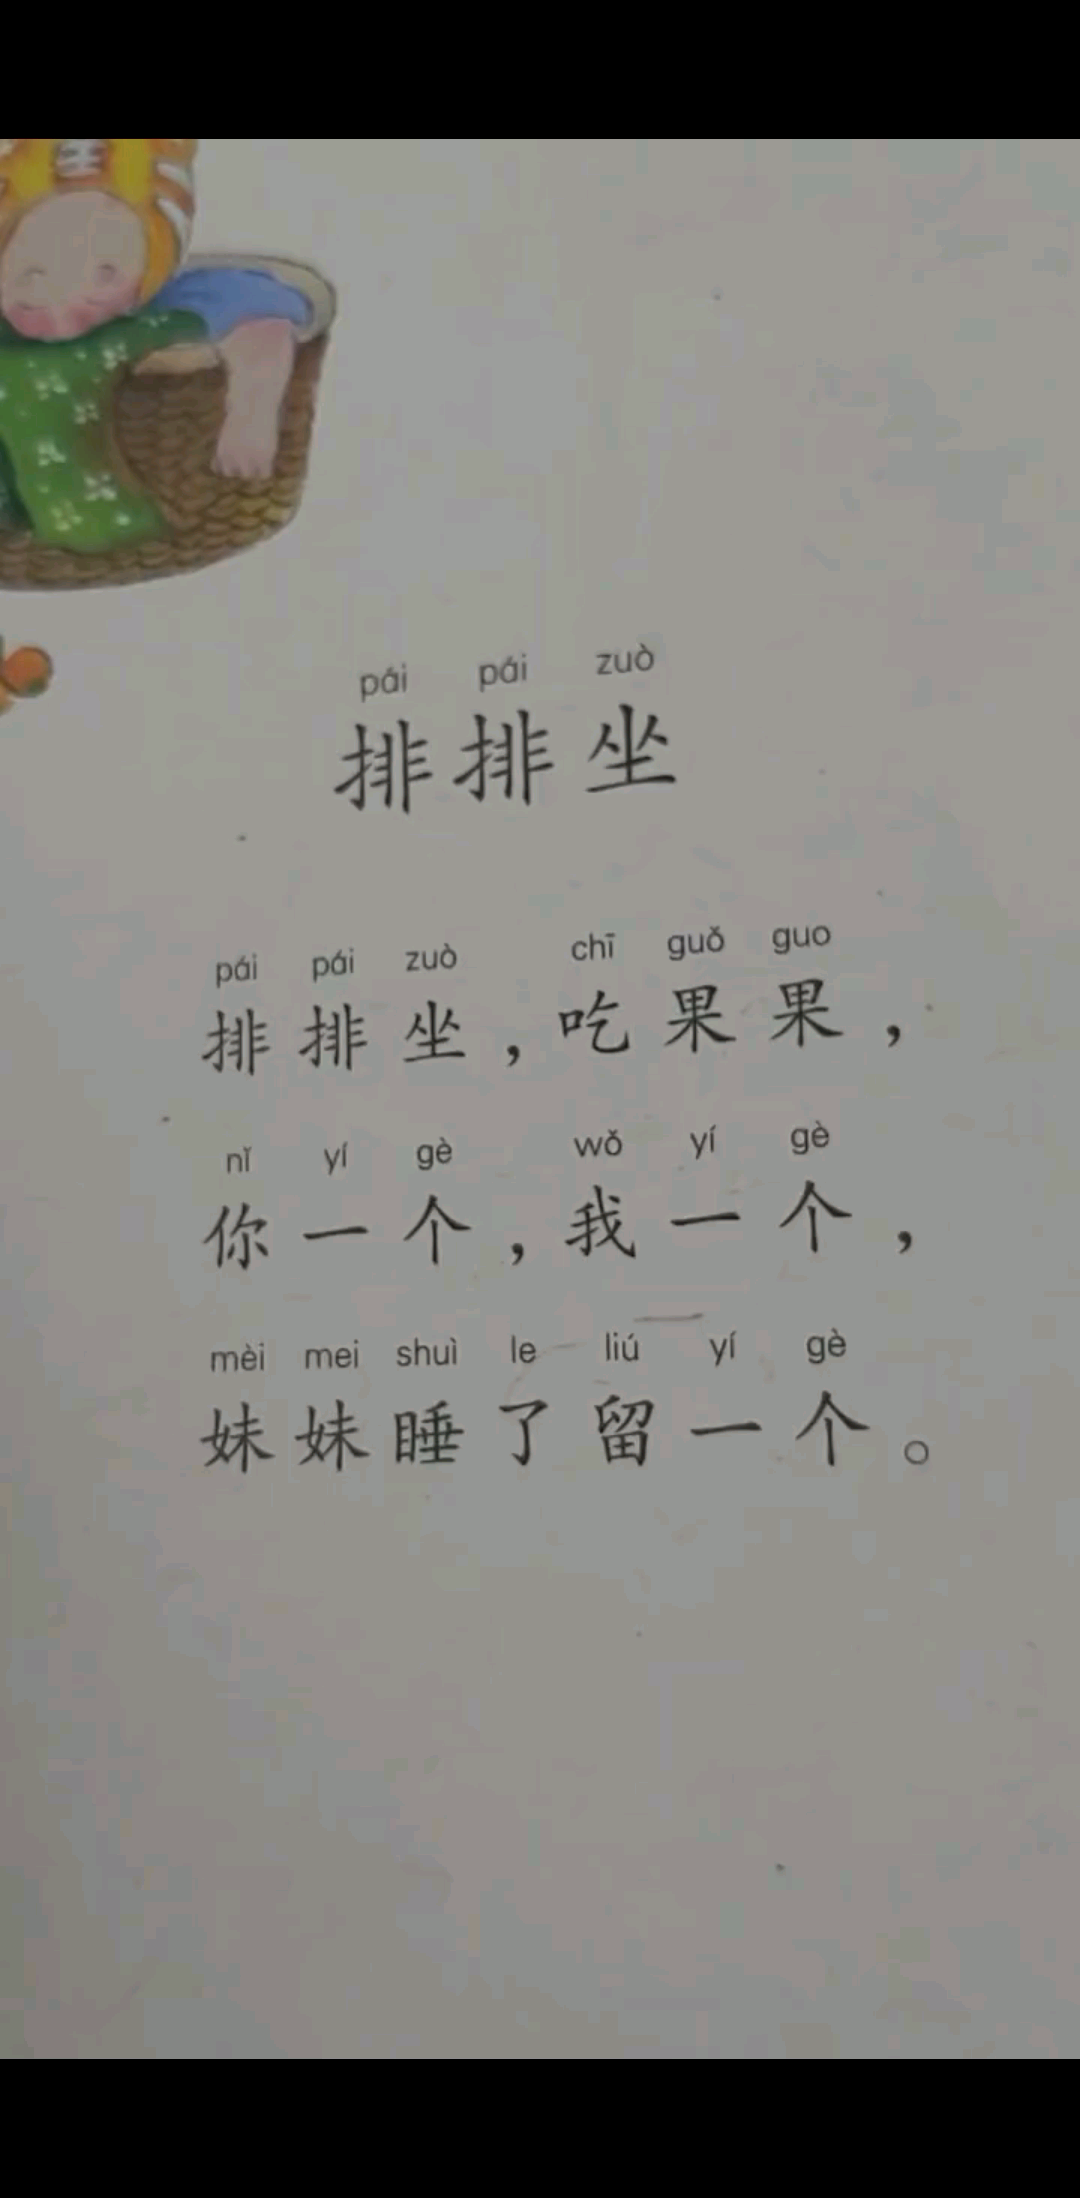 pái pái zuò
排排坐
pái pái zuò chī guǒ guo
排排坐，吃果果，
nǐ yí gè wǒ yí gè
你一个，我一个，
mèi mei shuì le liú yí gè
妹妹睡了留一个。